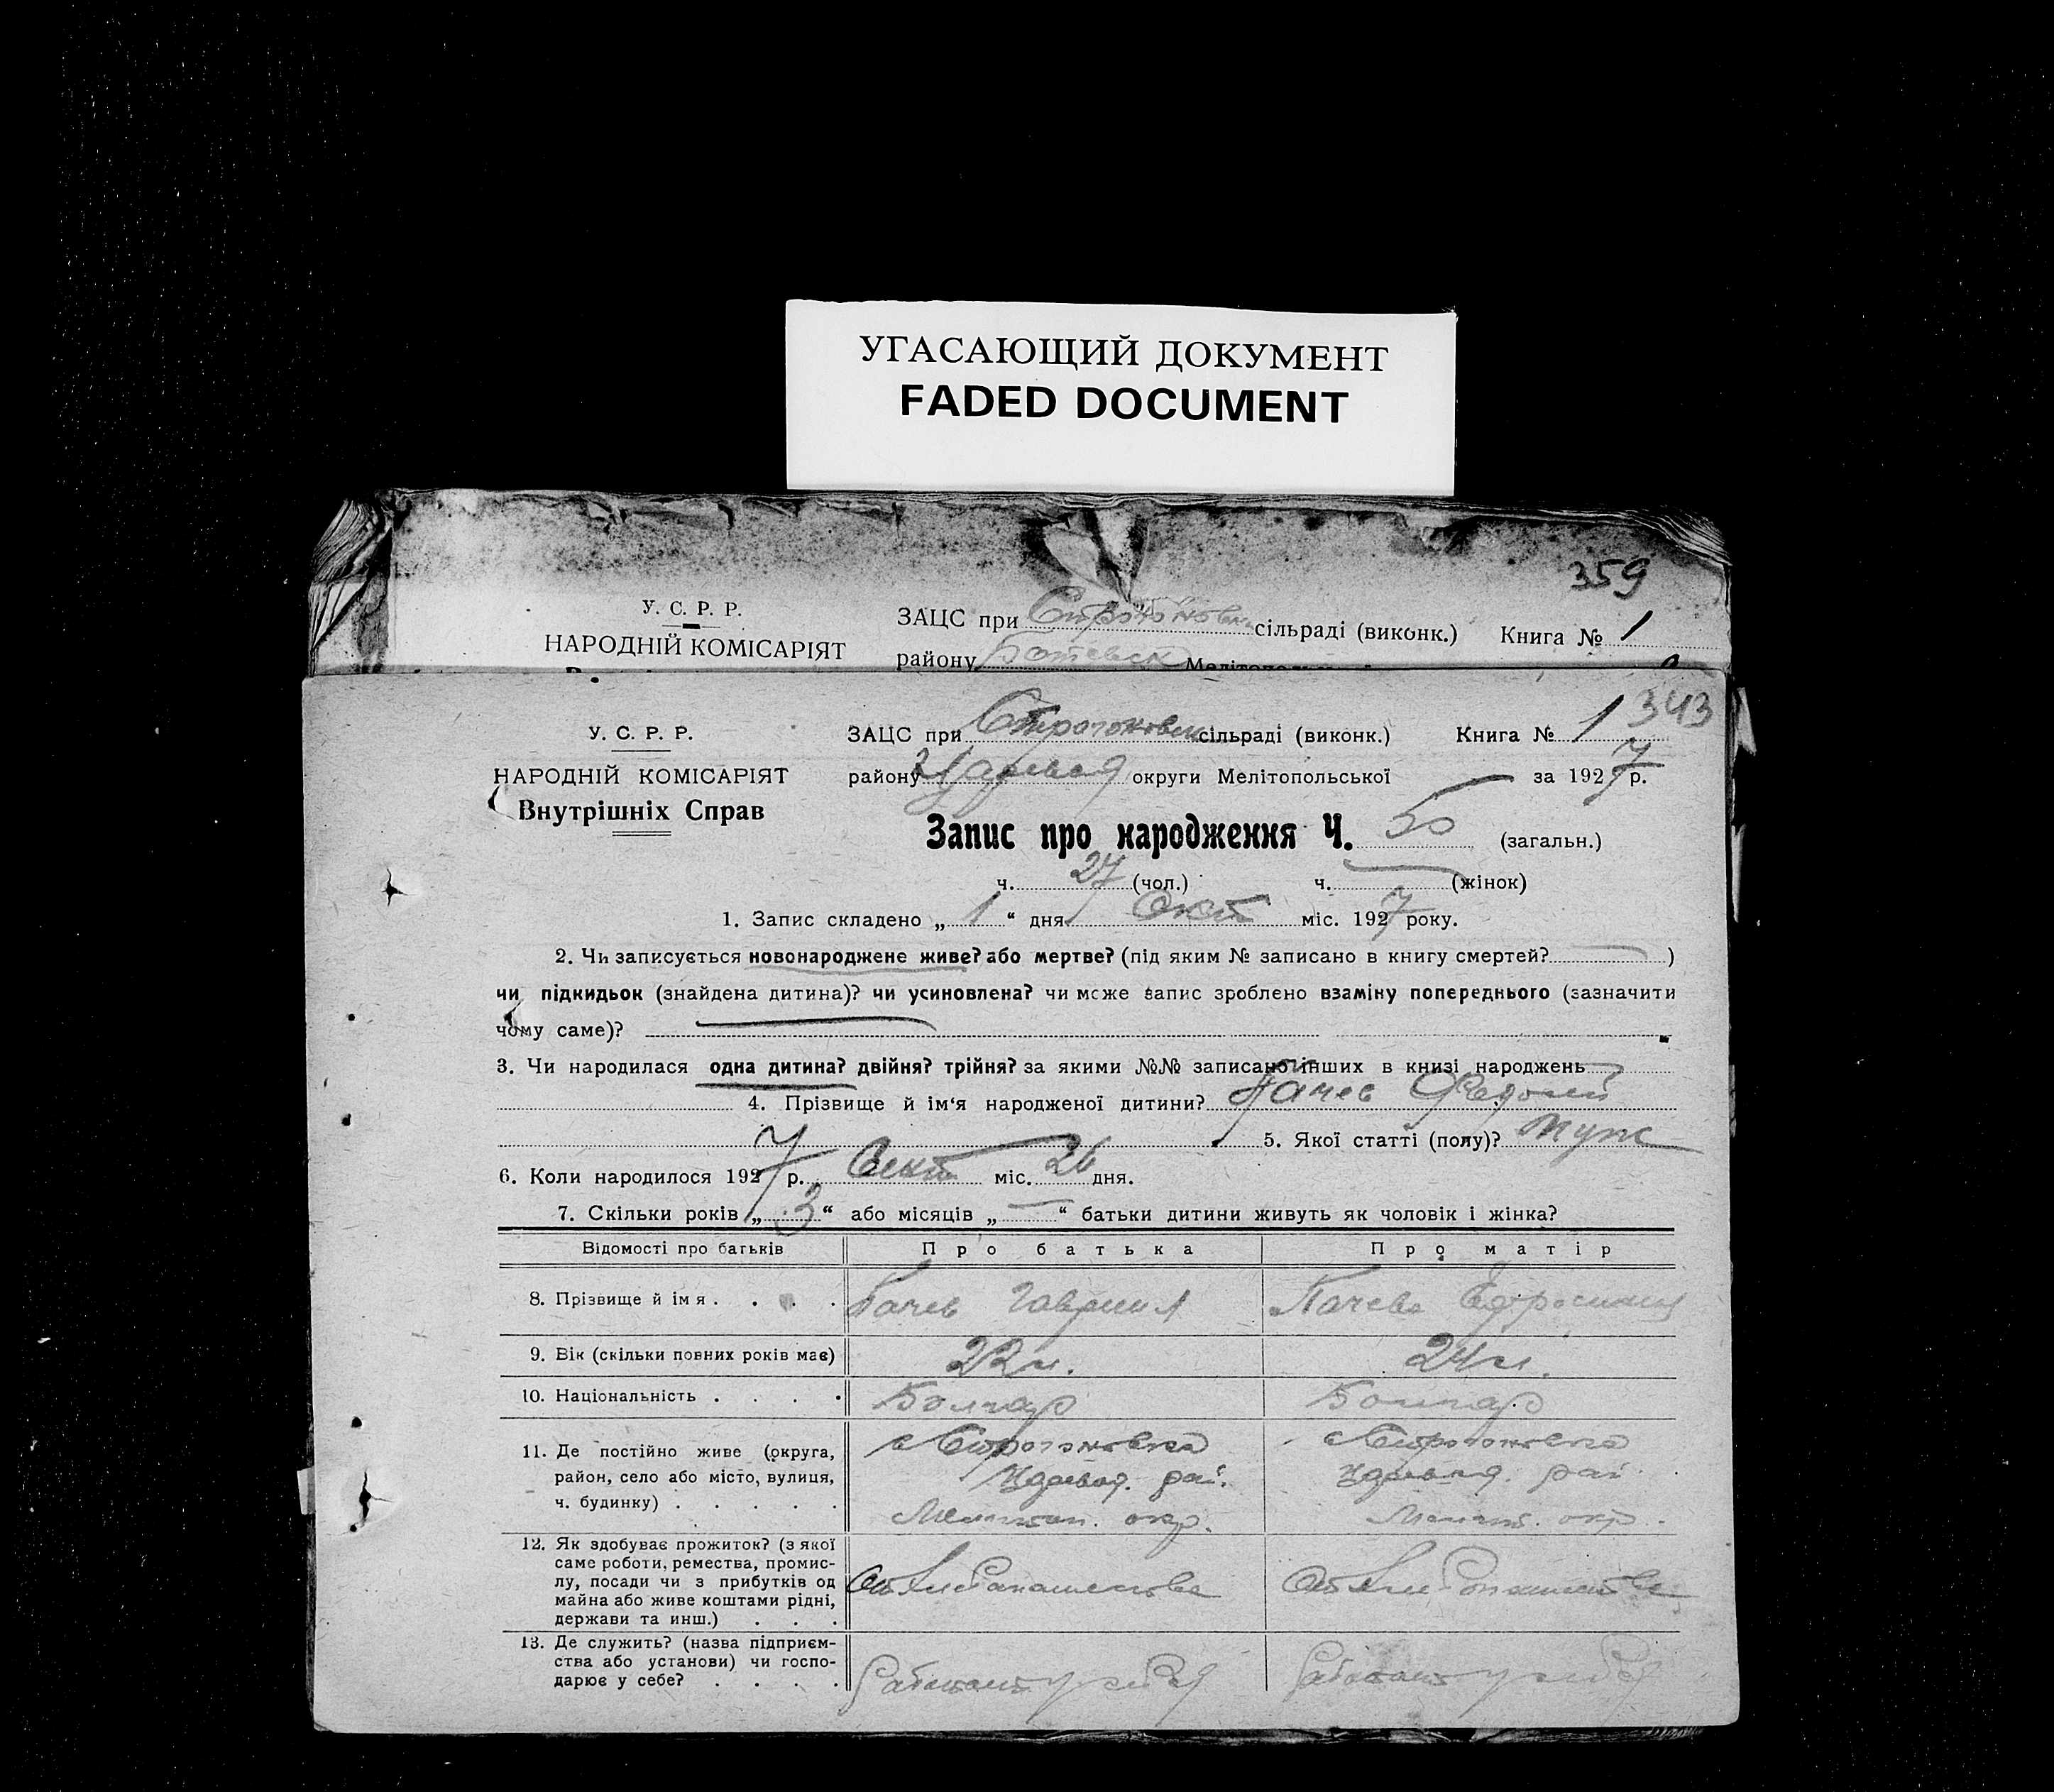 УГАСАЮЩИЙ ДОКУМЕНТ
FADED DOCUMENT
359
У. С. Р. Р.
НАРОДНІЙ КОМІСАРІЯТ
ЗАЦС при сільраді (виконк.) Книга № 1
району Ботевск
343
У. С. Р. Р.
НАРОДНІЙ КОМІСАРІЯТ
Внутрішніх Справ
ЗАЦС при Строгоновск сільраді (виконк.) Книга № 1
району округи Мелітопольської за 1927 р.
Запис про народження Ч. 50 (загальн.)
ч. 27 (чол.) ч. (жінок)
1. Запис складено „ 1 “ дня Окт міс. 1927 року.
2. Чи записується новонароджене живе? або мертве? (під яким № записано в книгу смертей? )
чи підкидьок (знайдена дитина)? чи усиновлена? чи може запис зроблено взаміну попереднього (зазначити
чому саме)?
3. Чи народилася одна дитина? двійня? трійня? за якими №№ записано інших в книзі народжень
4. Прізвище й ім‘я народженої дитини?
5. Якої статті (полу)? Муж
6. Коли народилося 1927 р. Сент міс. 26 дня.
7. Скільки років „ 3 “ або місяців „ “ батьки дитини живуть як чоловік і жінка?
Відомості про батьків Про батька Про матір
8. Прізвище й імя . . . . Гавриил Ефросиния
9. Вік (скільки повних років має) 22 л. 24 л.
10. Національність . . . . Болгар Болгар
11. Де постійно живе (округа,
район, село або місто, вулиця,
ч. будинку) . . . . .
с Строгоновка с Строгоновка
рай. рай.
Мелитоп. окр. Мелит. окр.
12. Як здобуває прожиток? (з якої
саме роботи, ремества, промис-
лу, посади чи з прибутків од
майна або живе коштами рідні,
держави та инш.) . . .
От Хлебопашества От Хлебопашества
13. Де служить? (назва підприєм-
ства або установи) чи госпо-
дарює у себе? . . . .
Работает у себя Работает у себя